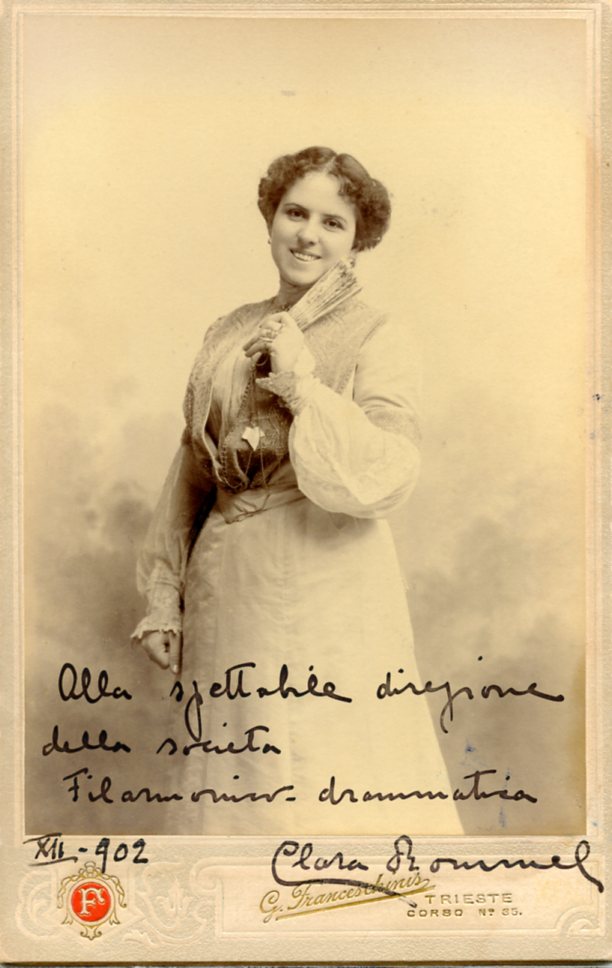 Alla spettabile direzione
della società
Filarmonico-drammatica
XII.-902
Clara Rommel
F
G. Franceschinis
TRIESTE
CORSO Nº 35.